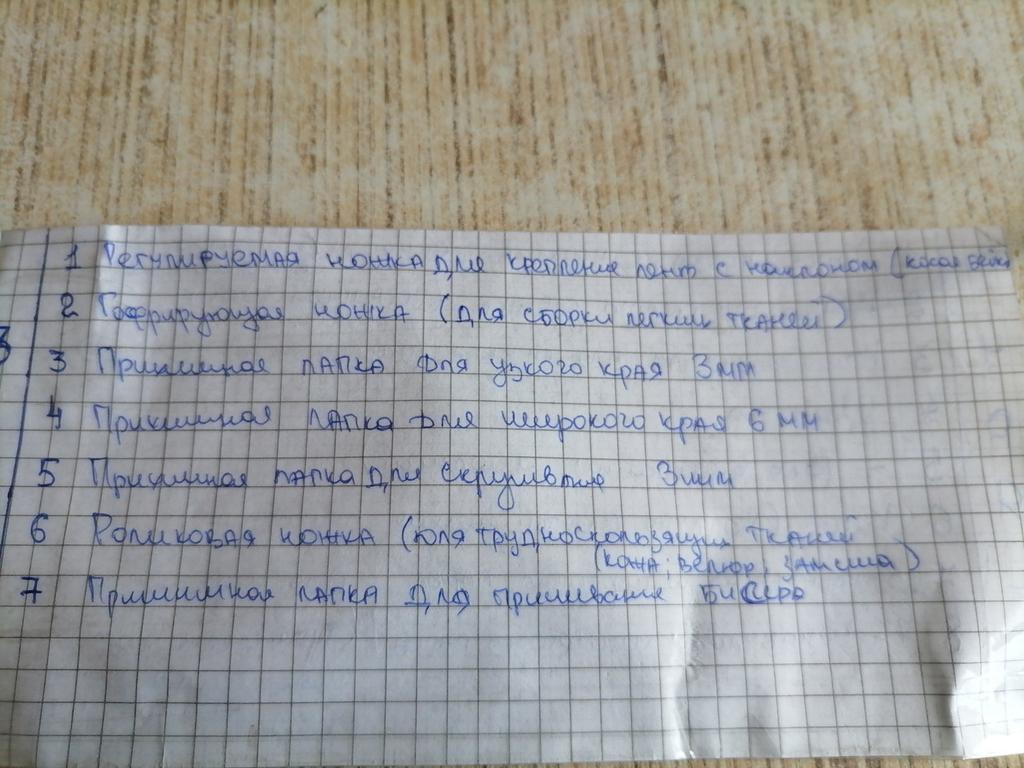 1 Регулируемая ножка для крепление лент с наклоном (косая бейка
2 Гофрирующая ножка (для сборки легких тканей)
3 Прижимная лапка для узкого края 3мм
4 Прижимная лапка для широкого края 6 мм
5 Прижимная лапка для 3мм
6 Роликовая ножка (для трудноскользящих тканей
(кожа; велюр, замша)
7 Прижимная лапка для пришивание Бисера